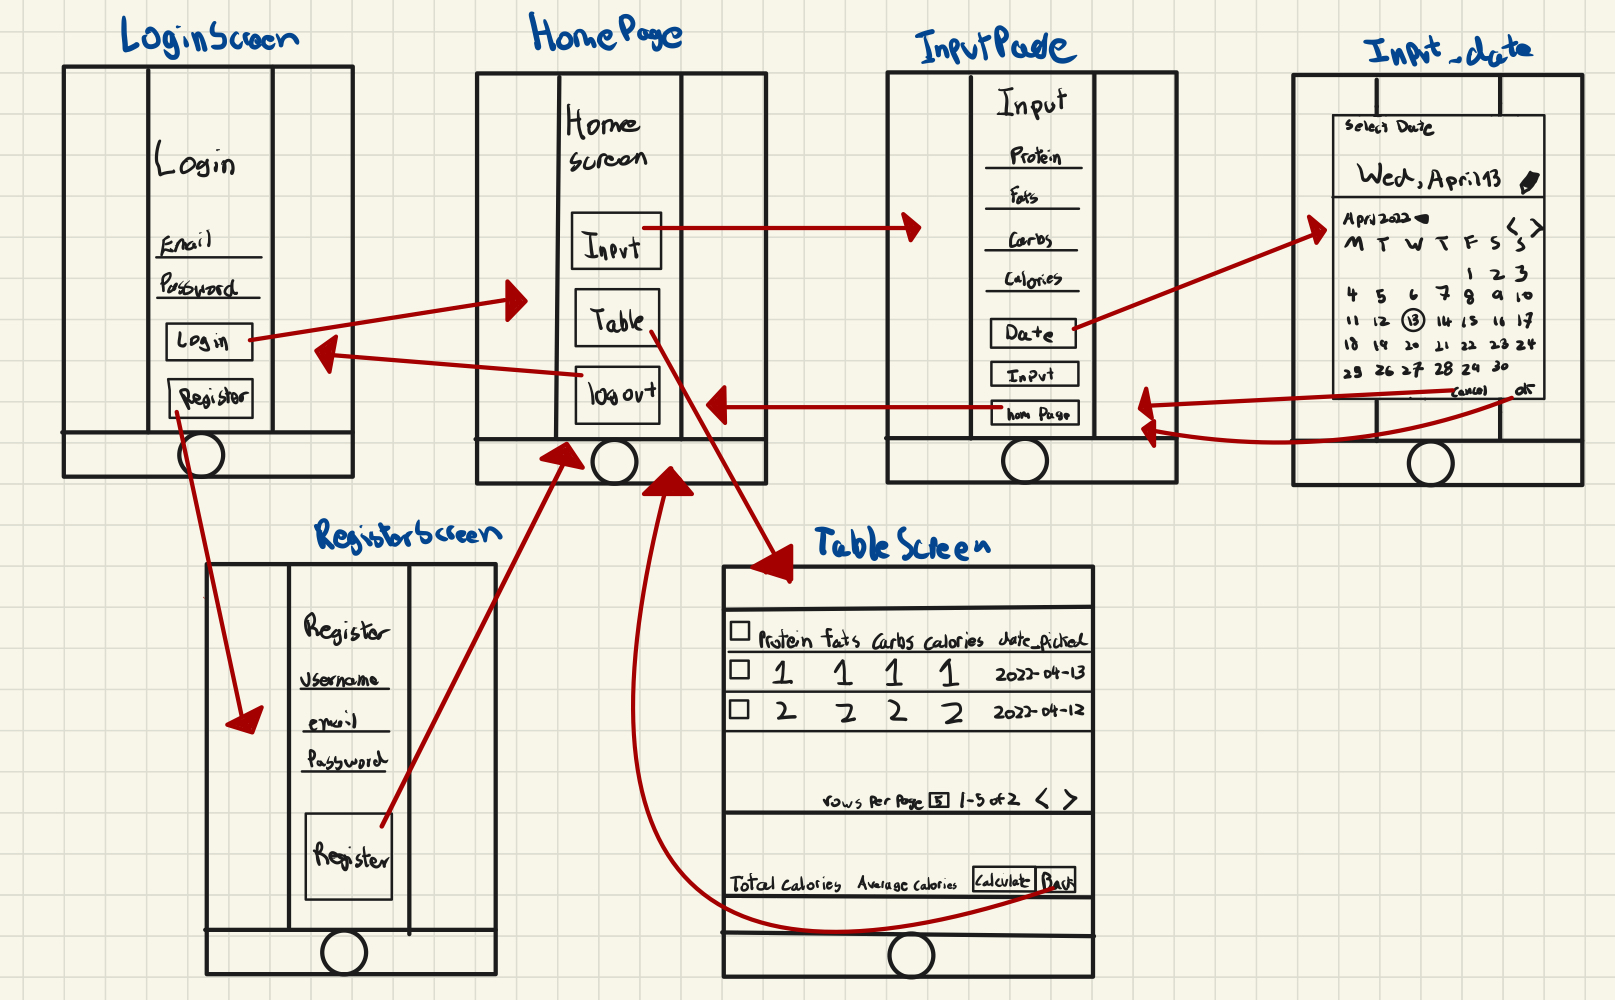 LoginScreen
Login
Email
Password
Login
Register
HomePage
Home
screen
Input
Table
logout
InputPage
Input
Protein
Fats
Carbs
Calories
Date
Input
hom Page
Input_date
Select Date
Wed, April 13
April 2022 < >
M T W T F S S
1 2 3
4 5 6 7 8 9 10
11 12 13 14 15 16 17
18 19 20 21 22 23 24
25 26 27 28 29 30
Cancel OK
RegistorScreen
Register
Username
email
Password
Register
TableScreen
Protein fats Carbs Calories date_picked
1 1 1 1 2022-04-13
2 2 2 2 2022-04-12
rows per page 5 1-5 of 2 < >
Total Calories Average Calories Calculate Back